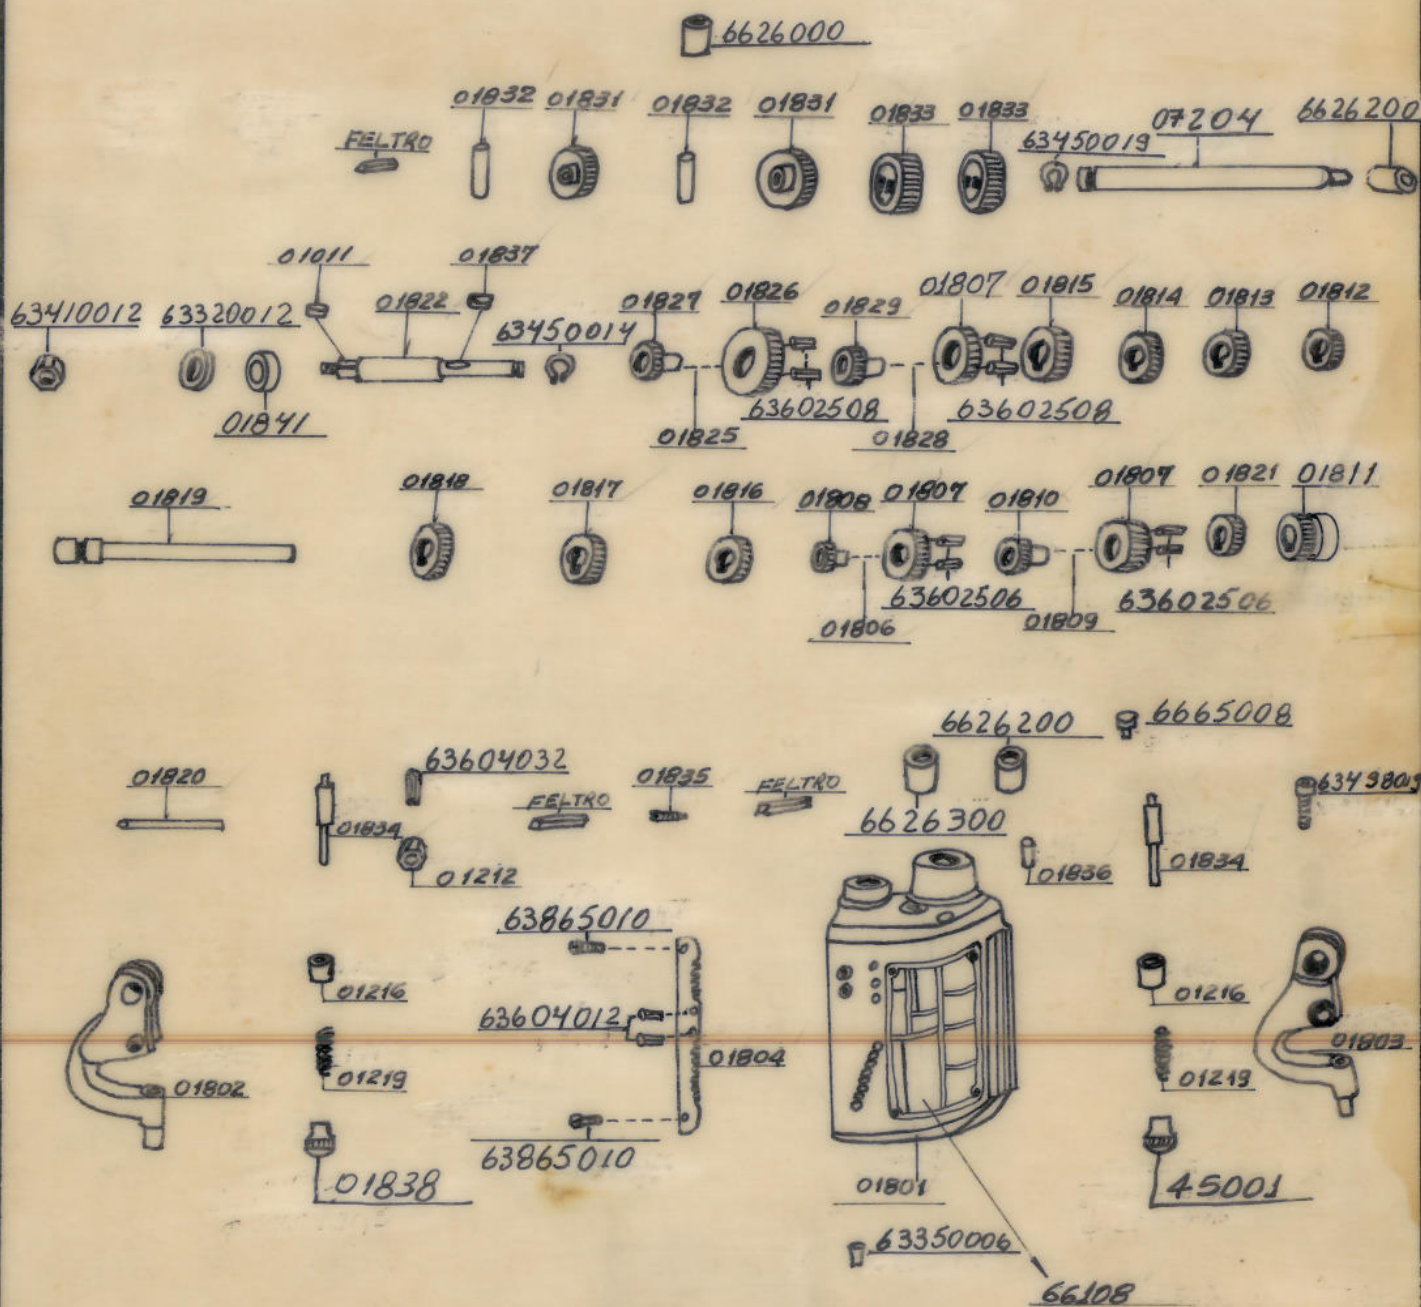 6626000
01832 01831 01832 01831 01833 01833 07204 6626200
FELTRO 63450019
01011 01837
63410012 63320012 01822 63450014 01827 01826 01829 01807 01815 01814 01813 01812
01841 01825 63602508 01828 63602508
01819 01818 01817 01816 01808 01807 01810 01807 01821 01811
01806 63602506 01809 63602506
6626200 6665008
01820 63604032 01835 FELTRO
FELTRO 6626300
01834 01212 01836 01834
63865010
01216 01216
63604012 01804 01803
01802 01219 01219
63865010
01838 01801 45001
63350006
66108